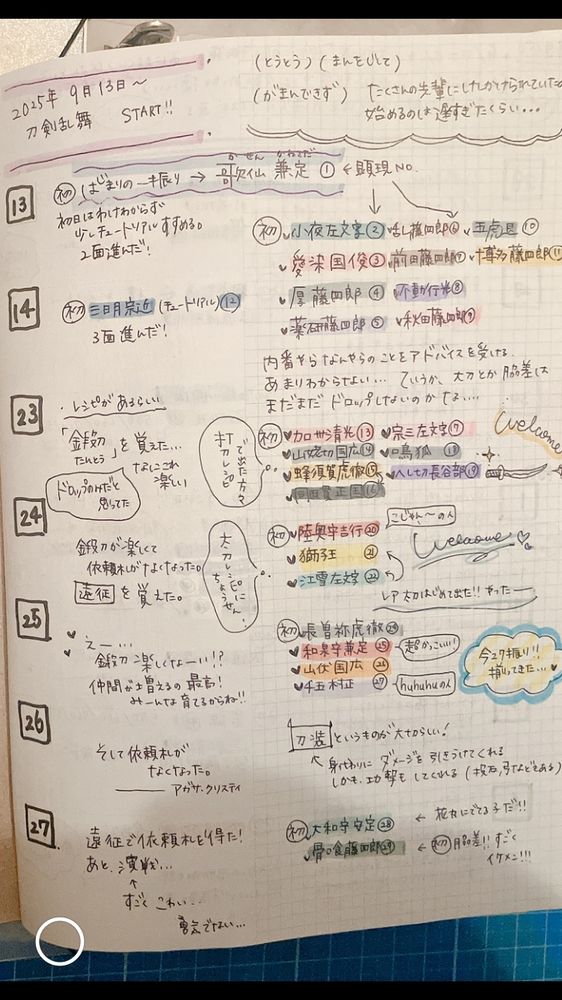 2025年 9月13日〜
刀剣乱舞 START!!
(とうとう)(まんをじして)
(がまんできず)
たくさんの先輩にしかけられていたの
始めるのは遅すぎたくらい…
13
初 はじまりの一振り → 歌仙 兼定 ① ← 顕現 NO.
か せん かねさだ
初日はわけわからず
少しチュートリアルすすめる。
2面進んだ!
初 小夜左文字② 乱藤四郎⑥ 五虎退⑩
愛染国俊③ 前田藤四郎⑦ 博多藤四郎⑪
厚藤四郎④ 不動行光⑧
薬研藤四郎⑤ 秋田藤四郎⑨
14
初 三日月宗近(チュートリアル)⑫
3面進んだ!
内番やらなんやらのことをアドバイスを受ける
あまりわからない… ていうか、太刀とか脇差は
まだまだドロップしないのかな…
23
・レシピがあるらしい
「鍛刀」を覚えた…
たんとう
なにこれ
楽しい
ドロップのみだと
思ってた
打刀レシピ
で出た方々
初 加州清光⑬ 宗三左文字⑰
山姥切国広⑭ 鳴狐⑱
蜂須賀虎徹⑮ へし切長谷部⑲
同田貫正国⑯
Welcome
24
鍛刀が楽しくて
依頼札がなくなった。
遠征を覚えた。
太刀レシピに
ちょうせん!
初 陸奥守吉行⑳
獅子王㉑
江雪左文字㉒
Welcome
レア太刀はじめて出た!! やったー
25
えー…
鍛刀楽しくなーい!?
仲間が増えるの最高!
みーんな育てるからね!!
初 長曽祢虎徹
和泉守兼定㉕
超かっこいい!
山伏国広㉖
千子村正㉗
huhuhuの人
今27振り!!
揃ってきた…
26
そして依頼札が
なくなった。
—— アガサ・クリスティ
刀装というものが大切らしい!
↑ 身代わりにダメージを引きうけてくれる
しかも、攻撃もしてくれる(投石,弓などもある)
27
遠征で依頼札を得た!
あと、演戦…
↑
すごくこわい…
勇気でない…
初 大和守安定㉘ ← 花丸にでてる子だ!!
骨喰藤四郎㉙ ← 初 脇差!! すごく
イケメン!!!